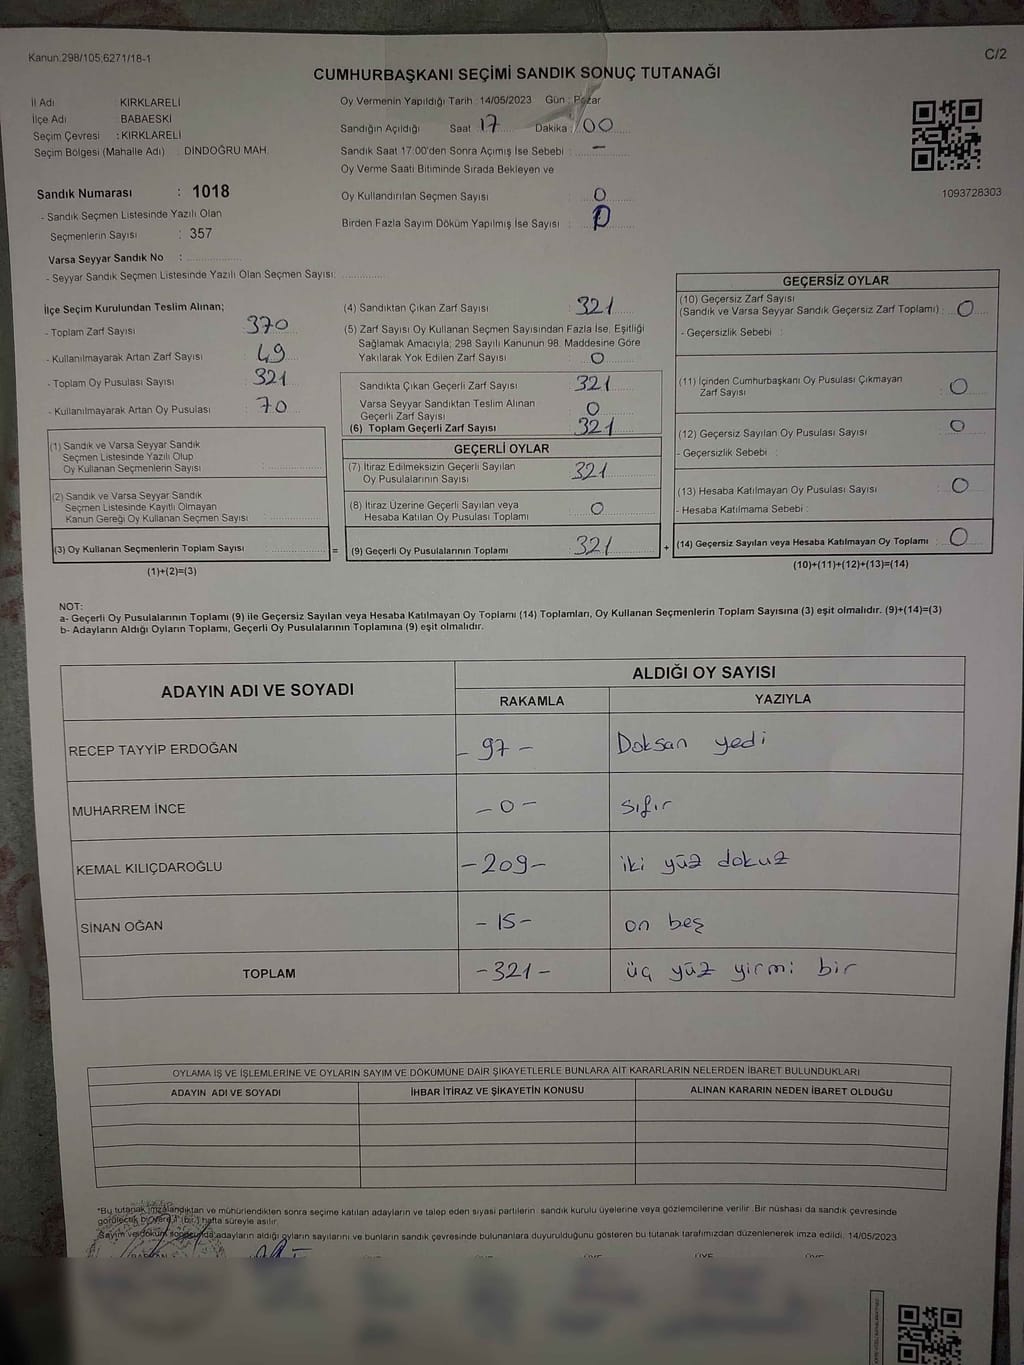 Kanun:298/105;6271/18-1
C/2
CUMHURBAŞKANI SEÇİMİ SANDIK SONUÇ TUTANAĞI
İl Adı KIRKLARELİ
İlçe Adı BABAESKİ
Seçim Çevresi : KIRKLARELİ
Seçim Bölgesi (Mahalle Adı) : DİNDOĞRU MAH.
Oy Vermenin Yapıldığı Tarih : 14/05/2023 Gün : Pazar
Sandığın Açıldığı Saat : 17 Dakika : 00
Sandık Saat 17:00'den Sonra Açımış İse Sebebi : -
Oy Verme Saati Bitiminde Sırada Bekleyen ve
Oy Kullandırılan Seçmen Sayısı : 0
Birden Fazla Sayım Döküm Yapılmış İse Sayısı :
1093728303
Sandık Numarası : 1018
- Sandık Seçmen Listesinde Yazılı Olan
Seçmenlerin Sayısı : 357
Varsa Seyyar Sandık No :
- Seyyar Sandık Seçmen Listesinde Yazılı Olan Seçmen Sayısı:
İlçe Seçim Kurulundan Teslim Alınan;
- Toplam Zarf Sayısı : 370
- Kullanılmayarak Artan Zarf Sayısı : 49
- Toplam Oy Pusulası Sayısı : 321
- Kullanılmayarak Artan Oy Pusulası : 70
(1) Sandık ve Varsa Seyyar Sandık
Seçmen Listesinde Yazılı Olup
Oy Kullanan Seçmenlerin Sayısı :
(2) Sandık ve Varsa Seyyar Sandık
Seçmen Listesinde Kayıtlı Olmayan
Kanun Gereği Oy Kullanan Seçmen Sayısı :
(3) Oy Kullanan Seçmenlerin Toplam Sayısı :
(1)+(2)=(3)
(4) Sandıktan Çıkan Zarf Sayısı : 321
(5) Zarf Sayısı Oy Kullanan Seçmen Sayısından Fazla İse, Eşitliği
Sağlamak Amacıyla; 298 Sayılı Kanunun 98. Maddesine Göre
Yakılarak Yok Edilen Zarf Sayısı : 0
Sandıkta Çıkan Geçerli Zarf Sayısı : 321
Varsa Seyyar Sandıktan Teslim Alınan
Geçerli Zarf Sayısı : 0
(6) Toplam Geçerli Zarf Sayısı : 321
GEÇERLİ OYLAR
(7) İtiraz Edilmeksizin Geçerli Sayılan
Oy Pusulalarının Sayısı : 321
(8) İtiraz Üzerine Geçerli Sayılan veya
Hesaba Katılan Oy Pusulası Toplamı : 0
= (9) Geçerli Oy Pusulalarının Toplamı : 321 +
GEÇERSİZ OYLAR
(10) Geçersiz Zarf Sayısı
(Sandık ve Varsa Seyyar Sandık Geçersiz Zarf Toplamı) : 0
- Geçersizlik Sebebi :
(11) İçinden Cumhurbaşkanı Oy Pusulası Çıkmayan
Zarf Sayısı : 0
(12) Geçersiz Sayılan Oy Pusulası Sayısı : 0
- Geçersizlik Sebebi :
(13) Hesaba Katılmayan Oy Pusulası Sayısı : 0
- Hesaba Katılmama Sebebi :
(14) Geçersiz Sayılan veya Hesaba Katılmayan Oy Toplamı : 0
(10)+(11)+(12)+(13)=(14)
NOT:
a- Geçerli Oy Pusulalarının Toplamı (9) ile Geçersiz Sayılan veya Hesaba Katılmayan Oy Toplamı (14) Toplamları, Oy Kullanan Seçmenlerin Toplam Sayısına (3) eşit olmalıdır. (9)+(14)=(3)
b- Adayların Aldığı Oyların Toplamı, Geçerli Oy Pusulalarının Toplamına (9) eşit olmalıdır.
ADAYIN ADI VE SOYADI ALDIĞI OY SAYISI
RAKAMLA YAZIYLA
RECEP TAYYİP ERDOĞAN - 97 - Doksan yedi
MUHARREM İNCE - 0 - sıfır
KEMAL KILIÇDAROĞLU - 209 - iki yüz dokuz
SİNAN OĞAN - 15 - on beş
TOPLAM - 321 - üç yüz yirmi bir
OYLAMA İŞ VE İŞLEMLERİNE VE OYLARIN SAYIM VE DÖKÜMÜNE DAİR ŞİKAYETLERLE BUNLARA AİT KARARLARIN NELERDEN İBARET BULUNDUKLARI
ADAYIN ADI VE SOYADI İHBAR İTİRAZ VE ŞİKAYETİN KONUSU ALINAN KARARIN NEDEN İBARET OLDUĞU
*Bu tutanak imzalandıktan ve mühürlendikten sonra seçime katılan adayların ve talep eden siyasi partilerin sandık kurulu üyelerine veya gözlemcilerine verilir. Bir nüshası da sandık çevresinde
görülecek bir yere 1 (bir) hafta süreyle asılır.
Sayım ve döküm sonucunda adayların aldığı oyların sayılarını ve bunların sandık çevresinde bulunanlara duyurulduğunu gösteren bu tutanak tarafımızdan düzenlenerek imza edildi. 14/05/2023
BAŞKAN ÜYE ÜYE ÜYE